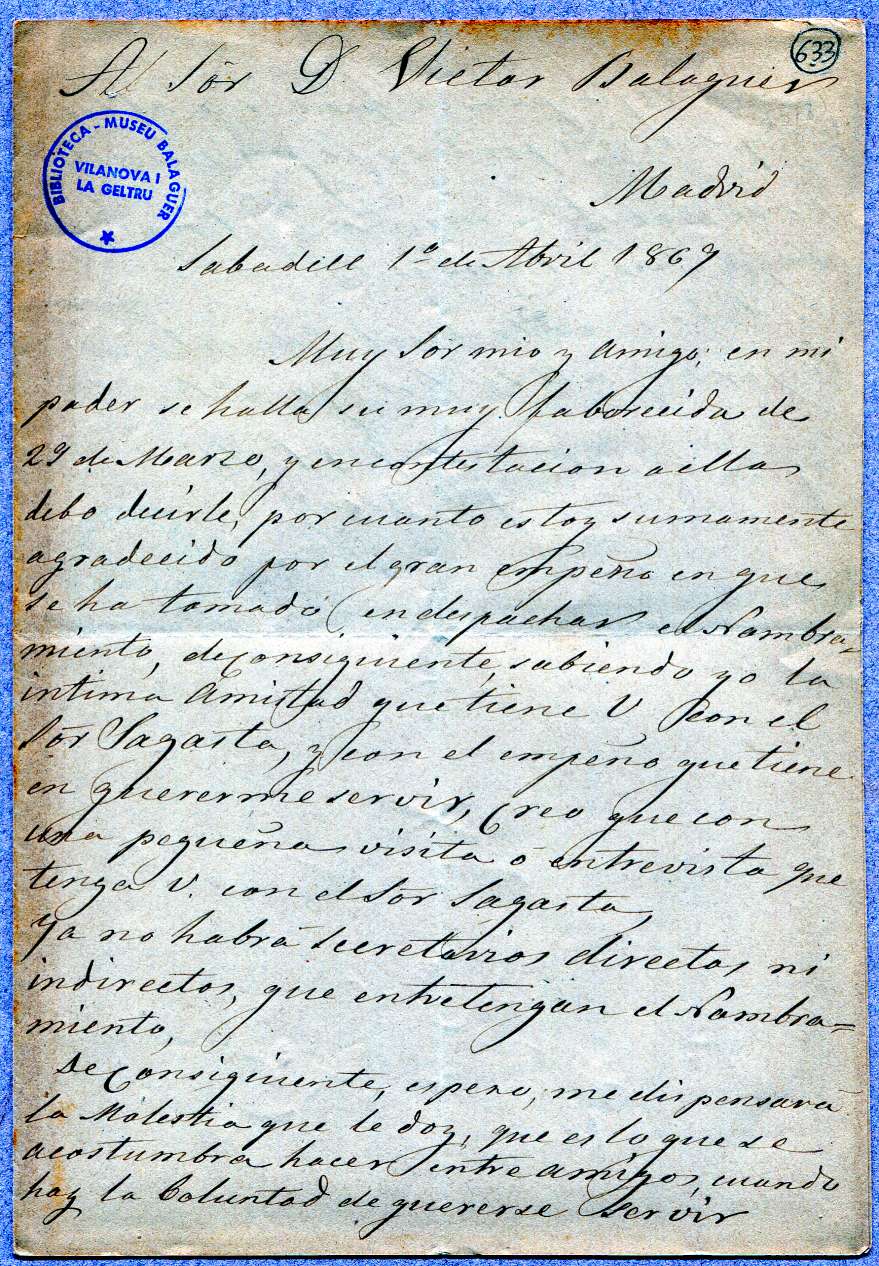 633
Al Sör D. Victor Balaguer
BIBLIOTECA - MUSEU BALAGUER
VILANOVA I
LA GELTRU
Madrid
Sabadell 1º de Abril 1869
Muy Sor mio y amigo; en mi
poder se halla su muy faborecida de
29 de Marzo, y en contestacion a ella
debo decirle, por cuanto estoy sumamente
agradecido por el gran empeño en que
se ha tomado en despachar el Nombra=
miento, de consiguiente, sabiendo yo la
intima Amistad que tiene V con el
Sör Sagasta, y con el empeño que tiene
en quererme servir, Creo que con
una pequeña visita ó entrevista que
tenga V. con el Sor Sagasta
ya no habrá secretarios directos ni
indirectos, que entretengan el Nombra=
miento,
De Consiguiente, espero, me dispensará
la Molestia que le doy, que es lo que se
acostumbra hacer entre amigos, cuando
hay la Boluntad de quererse servir